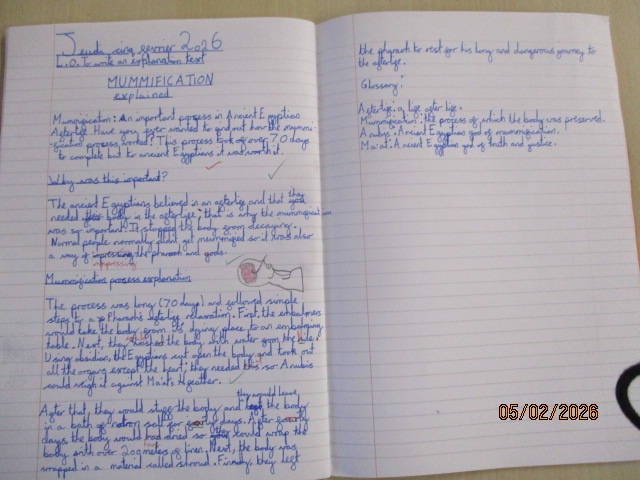 Jeudi cinq fevrier 2026
L.O. To write an explanation text
MUMMIFICATION
explained
Mummification: An important process in Ancient Egyptian
Afterlife. Have you ever wanted to find out how the mummif-
ication process worked? This process took of over 70 days
to complete but to ancient Egyptians it was worth it.
Why was this important?
The ancient Egyptians believed in an afterlife and that they
needed body in the afterlife: that is why the mummification
was so important. It stopped the body from decaying.
Normal people normally didnt get mummified so it was also
a way of impressing the pharaoh and gods.
impressing
Mummification process explanation
The process was long (70 days) and followed simple
steps to a Pharaoh's afterlife relaxation. First, the embalmers
would take the body from its dying place to an embalming
table. Next, they washed the body with water from the
Using obsidian, the Egyptians cut open the body and took out
all the organs except the heart; they needed this so Anubis
could weigh it against Ma'ats feather.
they would leave
After that, they would stuff the body and the body
in a bath of natron salt for days. After
days, the body would had dried so could wrap the
body with over 20 meters of linen. Next, the body was
wrapped in a material called shroud. Finally, they left
the pharaoh to rest for his long and dangerous journey to
the afterlife.
Glossary:
Afterlife: a life after life.
Mummification: the process of which the body was preserved.
Anubis: Ancient Egyptian god of mummification.
Ma'at: Ancient Egyptian god of truth and justice.
05/02/2026